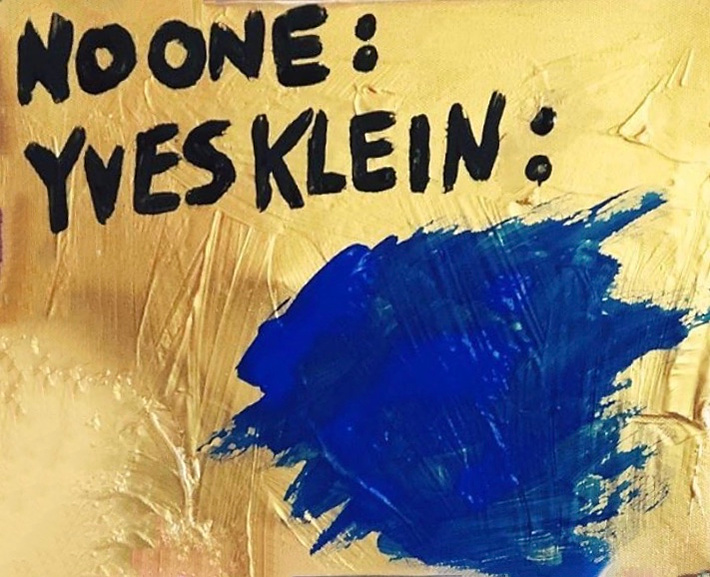 NO ONE:
YVES KLEIN: